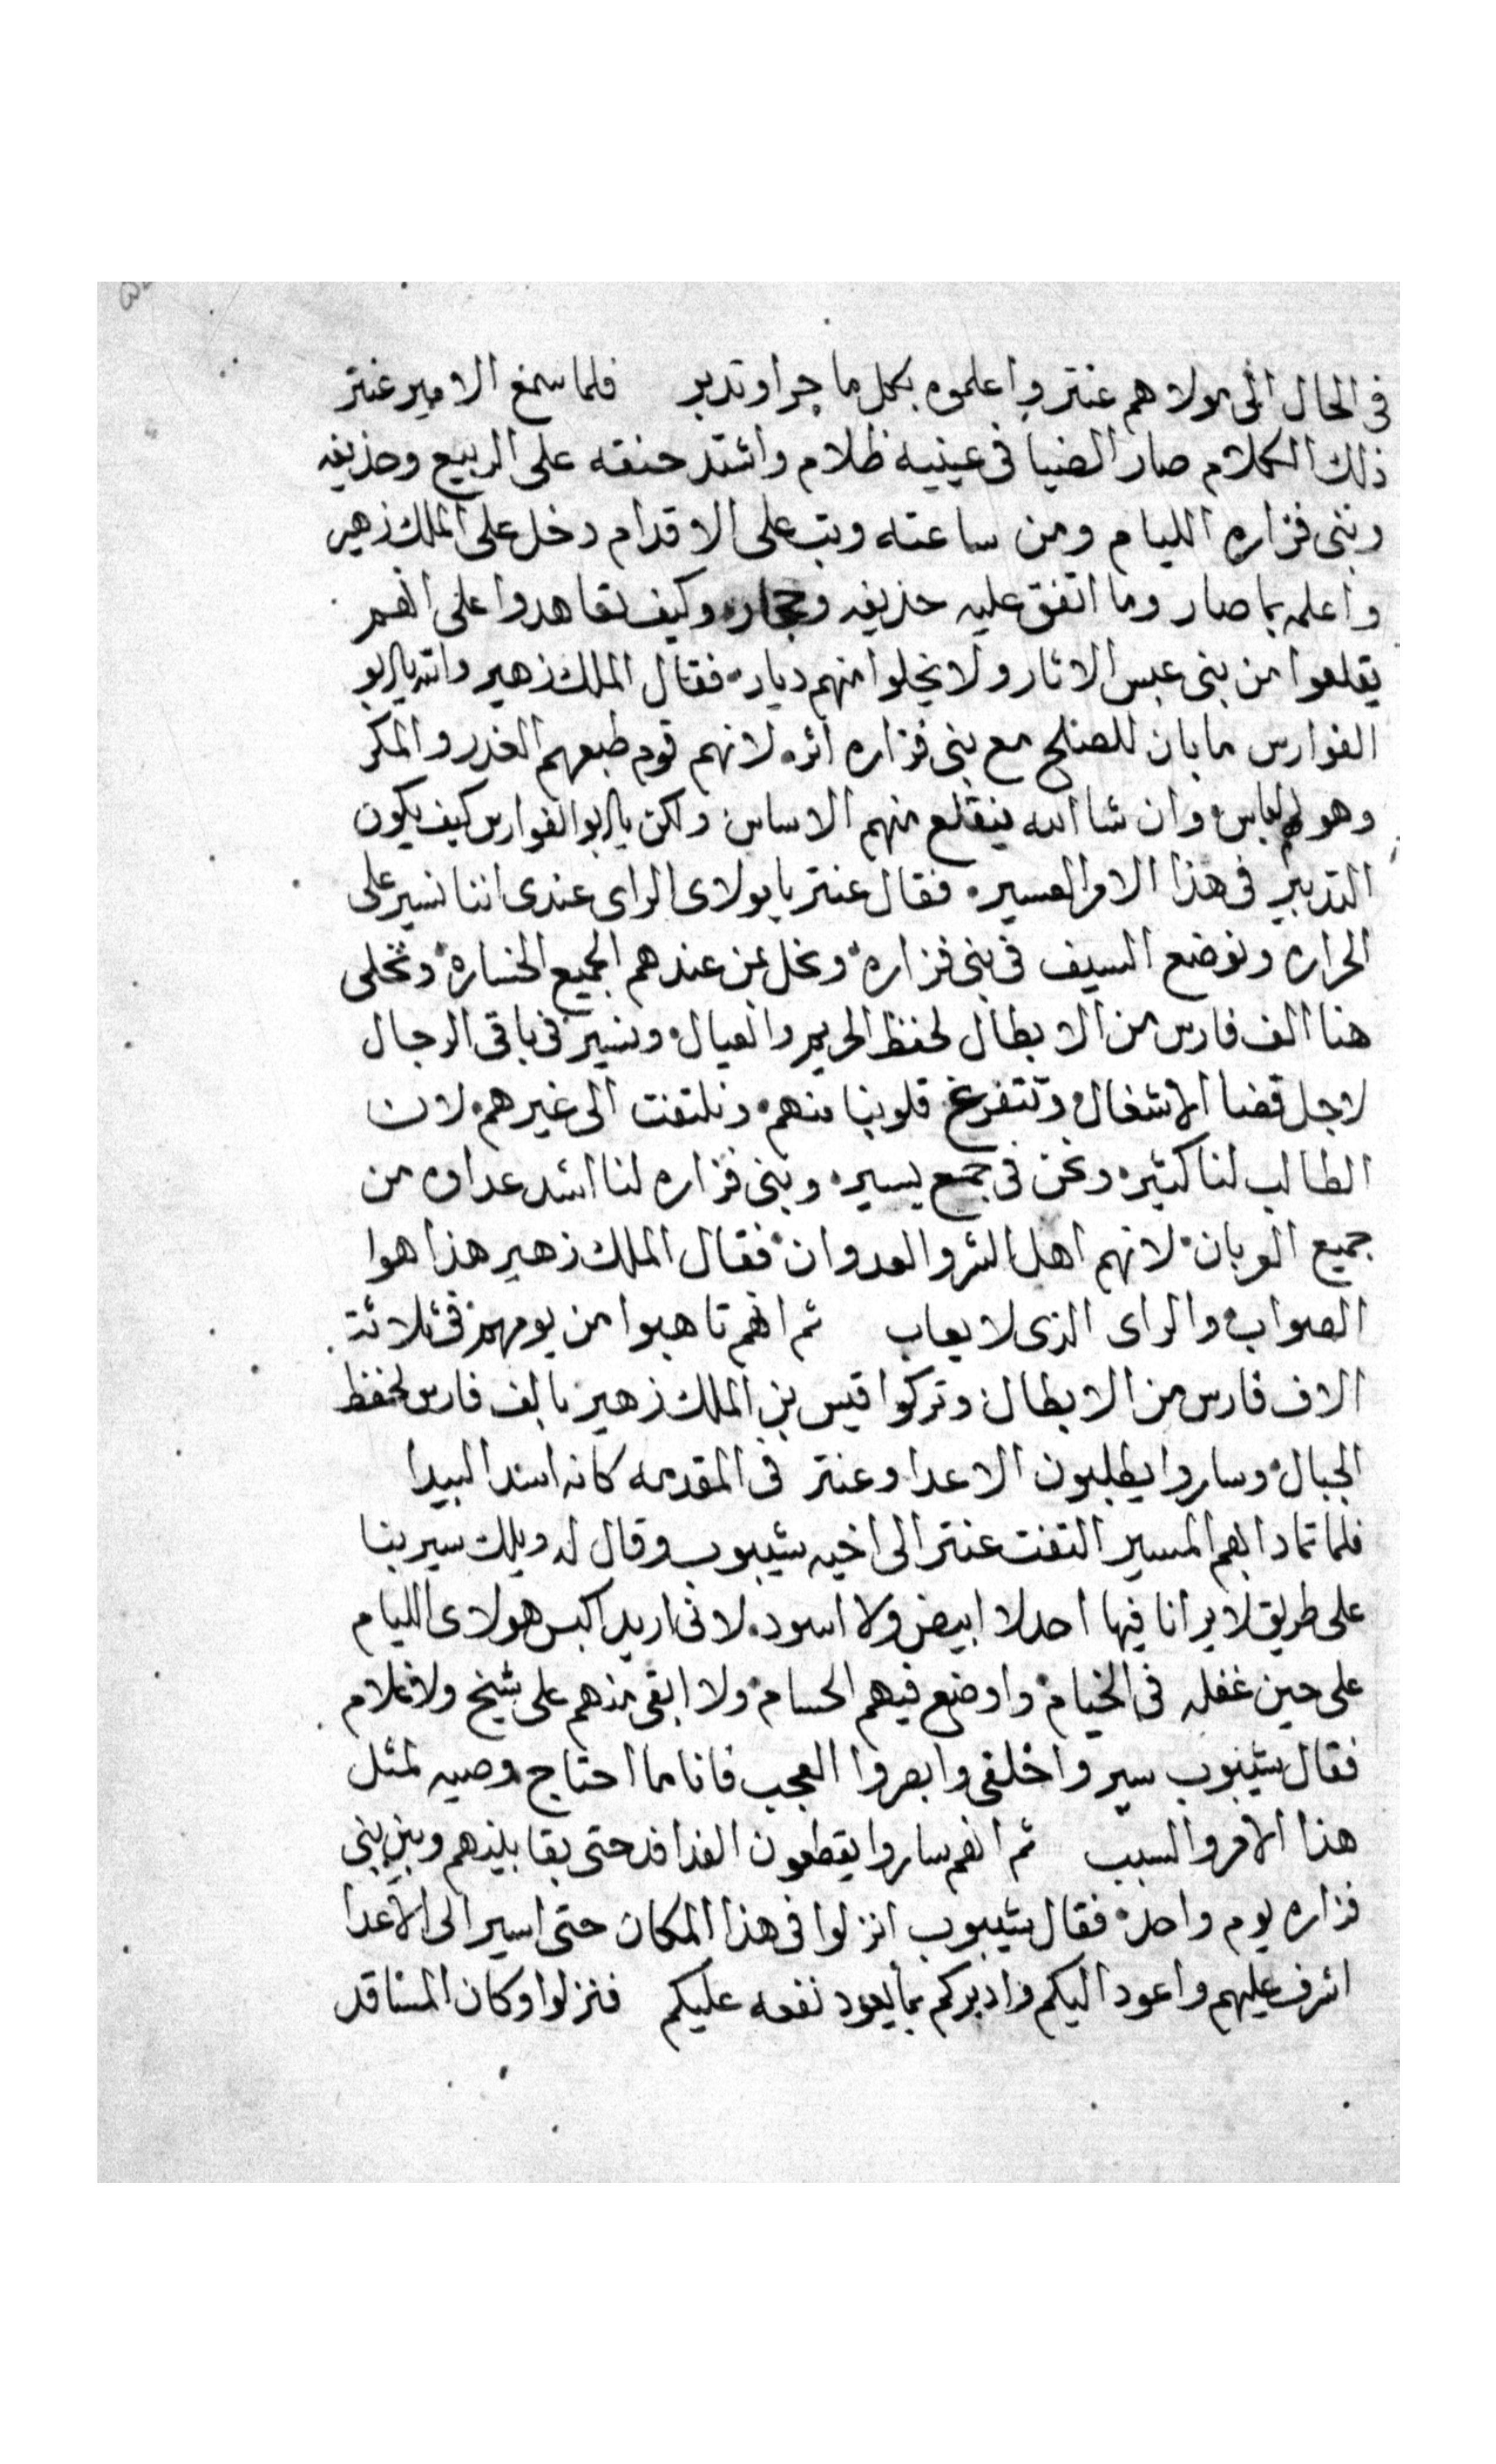 في الحال الى مولاهم عنتر واعلموه بكل ما جرا وتدبر فلما سمع الامير عنتر
ذلك الكلام صار الضيا في عينيه ظلام واشتد حنقه على الربيع وحذيفه
وبنى فزاره الليام ومن ساعته وتب على الاقدام دخل على الملك زهير
واعلمه بما صار وما اتفق عليه حذيفه وحجار وكيف تعاهدوا على انهم
يقلعوا من بنى عبس الاثار ولا يخلوا منهم ديار فقال الملك زهير والله يابو
الفوارس ما بان للصلح مع بنى فزاره اثر لانهم قوم طبعهم الغدر والمكر
وهو لهم لباس وان شا الله ينقلع منهم الاساس ولكن يابو الفوارس كيف يكون
التدبير في هذا الامر العسير فقال عنتر يا مولاى الراى عندى اننا نسير على
الحراره ونوضع السيف في بنى فزاره ونحل بمن عندهم الجميع الخساره ونخلى
هنا الف فارس من الابطال لحفظ الحريم والعيال ونسير في باقى الرجال
لاجل قضا الاشغال وتتفرغ قلوبنا منهم ونلتفت الى غيرهم لان
الطالب لنا كثير ونحن في جمع يسير وبنى فزاره لنا اشد عداوه من
جميع العربان لانهم اهل الشر والعدوان فقال الملك زهير هذا هوا
الصواب والراى الذى لا يعاب ثم انهم تاهبوا من يومهم في ثلاثة
الاف فارس من الابطال وتركوا قيس بن الملك زهير بالف فارس لحفظ
الجبال وساروا يطلبون الاعدا وعنتر في المقدمه كانه اسد البيدا
فلما تمادا بهم المسير التفت عنتر الى اخيه شيبوب وقال له ويلك سير بنا
على طريق لا يرانا فيها احد لا ابيض ولا اسود لانى اريد اكبس هولاى الليام
على حين غفله في الخيام واوضع فيهم الحسام ولا ابقى منهم على شيخ ولا غلام
فقال شيبوب سيروا خلفى وابصروا العجب فانا ما احتاج وصيه لمثل
هذا الامر والسبب ثم انهم ساروا يقطعون الفدافد حتى بقا بينهم وبين بنى
فزاره يوم واحد فقال شيبوب انزلوا في هذا المكان حتى اسير الى الاعدا
اشرف عليهم واعود اليكم وادبركم بما يعود نفعه عليكم فنزلوا وكان المسا قد